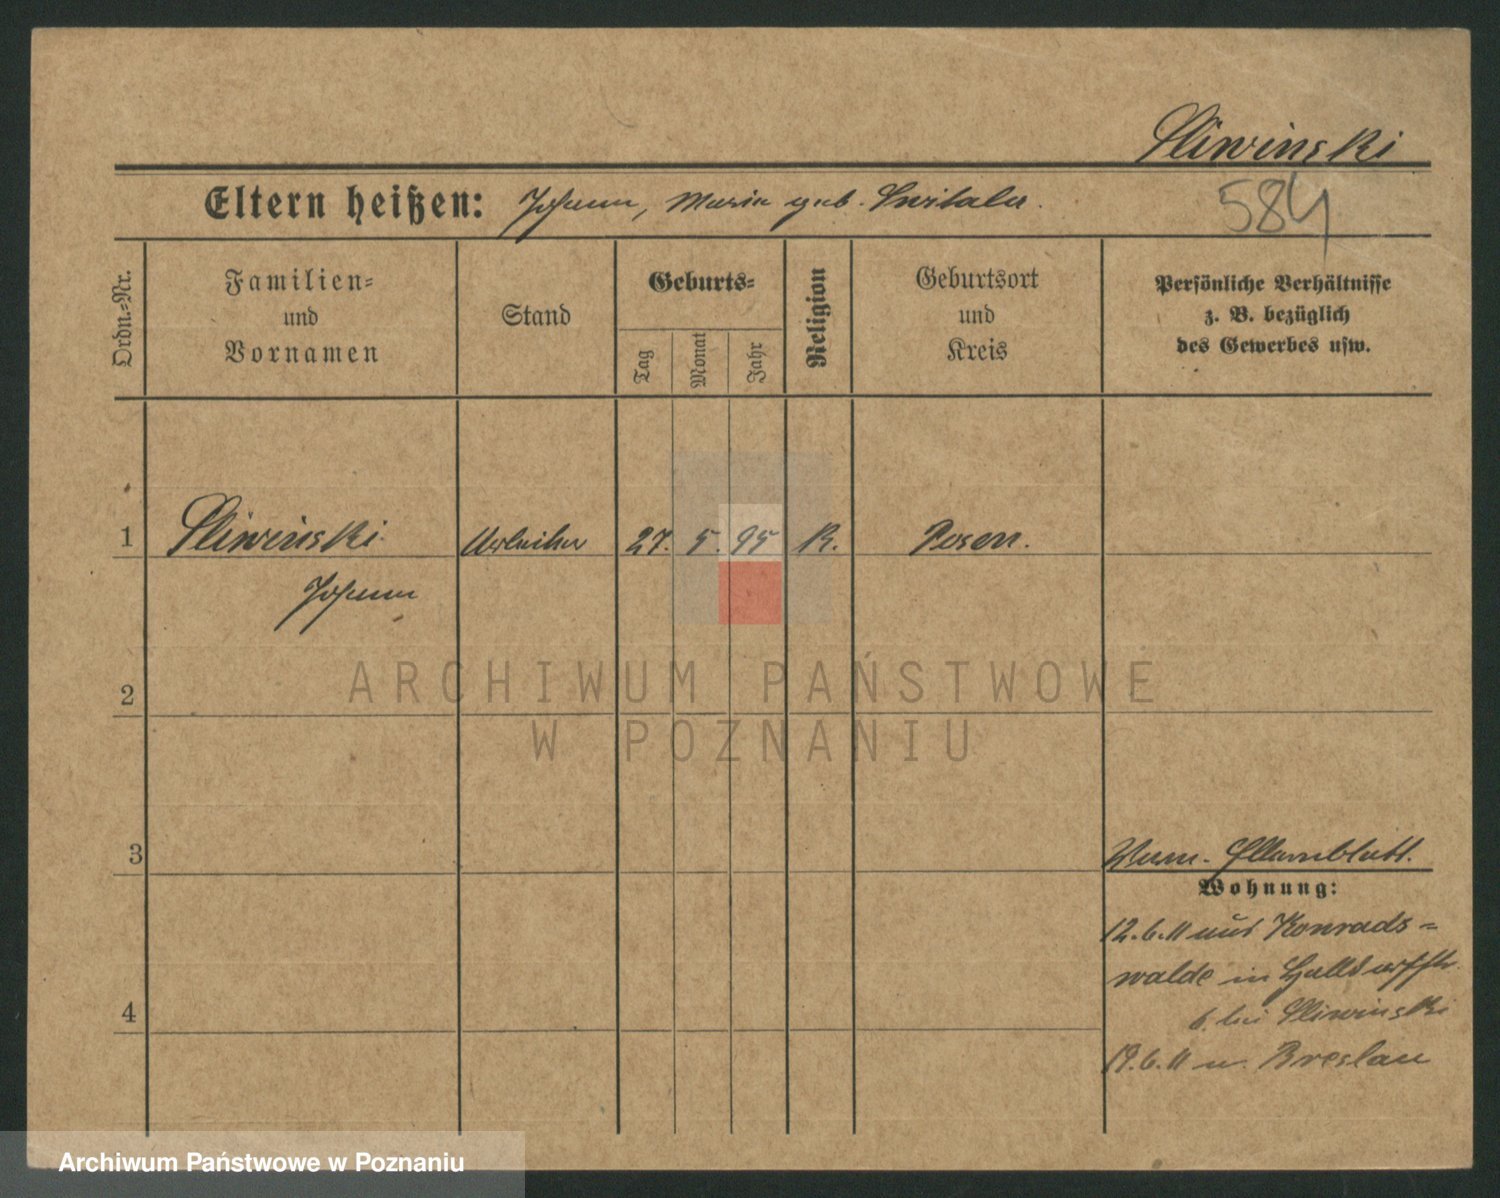 Sliwinski
Eltern heißen: Johann, Maria geb. Switala.
584
Ordn.-Nr.
Familien-
und
Vornamen
Stand
Geburts-
Tag
Monat
Jahr
Religion
Geburtsort
und
Kreis
Persönliche Verhältnisse
z. B. bezüglich
des Gewerbes usw.
1 Sliwinski Arbeiter 27. 5. 95 K. Posen.
Johann
ARCHIWUM PAŃSTWOWE
W POZNANIU
2
3
Elternblatt.
Wohnung:
12.6.11 aus Konrads-
walde in
6. bei Sliwinski
4
19.6.11 n. Breslau
Archiwum Państwowe w Poznaniu